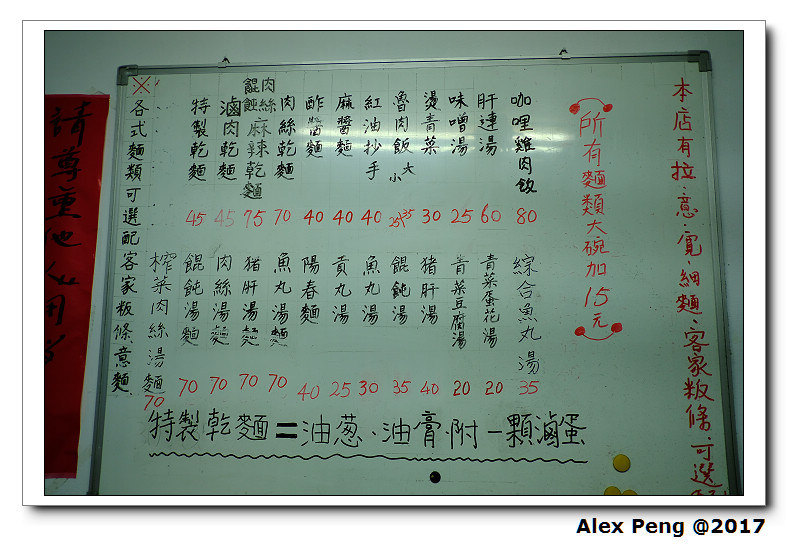 本店有拉、意、寬、細麵、客家粄條、可選
所有麵類大碗加15元
咖哩雞肉飯 80
肝連湯 60
味噌湯 25
燙青菜 30
魯肉飯 大 35 小 25
紅油抄手 40
麻醬麵 40
酢醬麵 40
肉絲乾麵 70
餛飩肉絲麻辣乾麵 75
滷肉乾麵 45
特製乾麵 45
綜合魚丸湯 35
青菜蛋花湯 20
青菜豆腐湯 20
豬肝湯 40
餛飩湯 35
魚丸湯 30
貢丸湯 25
陽春麵 40
魚丸湯麵 70
豬肝湯麵 70
肉絲湯麵 70
餛飩湯麵 70
榨菜肉絲湯麵 70
※各式麵類可選配客家粄條意麵.
特製乾麵=油蔥、油膏.附一顆滷蛋
請尊重他人用
Alex Peng @2017